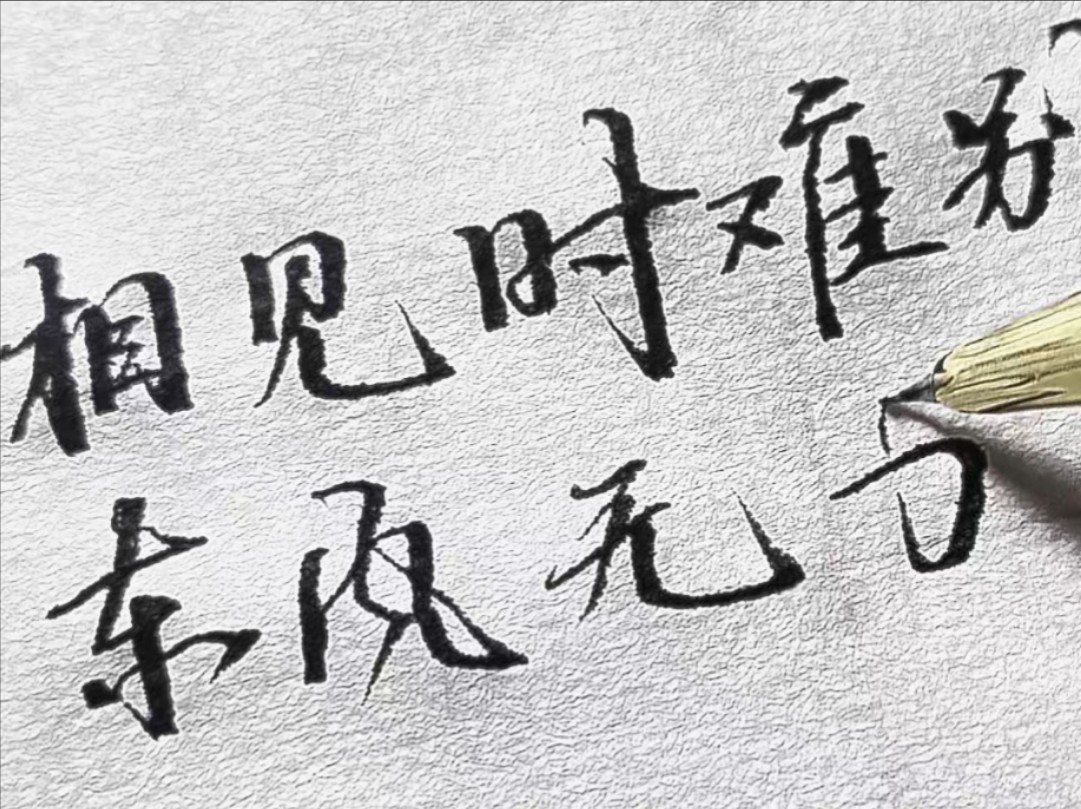 相见时难
东风无力